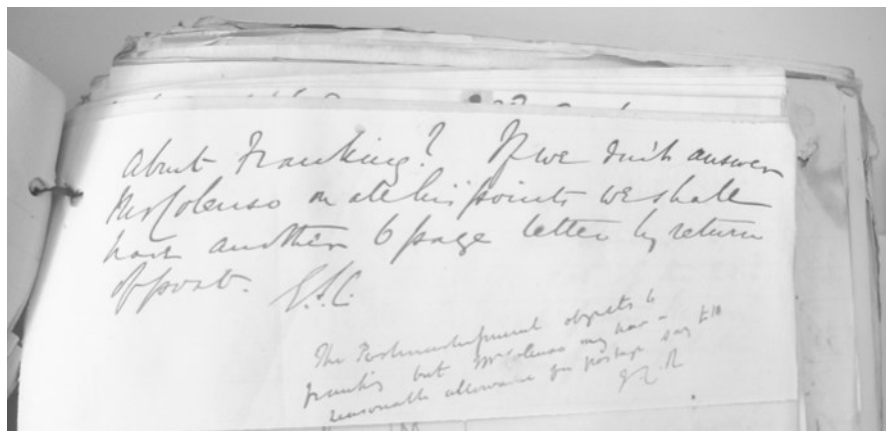 About Franking? If we don't answer
Mr Colenso on all his points we shall
have another 6 page letter by return
of post.
The Postmaster General objects to
franking but Mr Colenso may have a
reasonable allowance for postage say £10